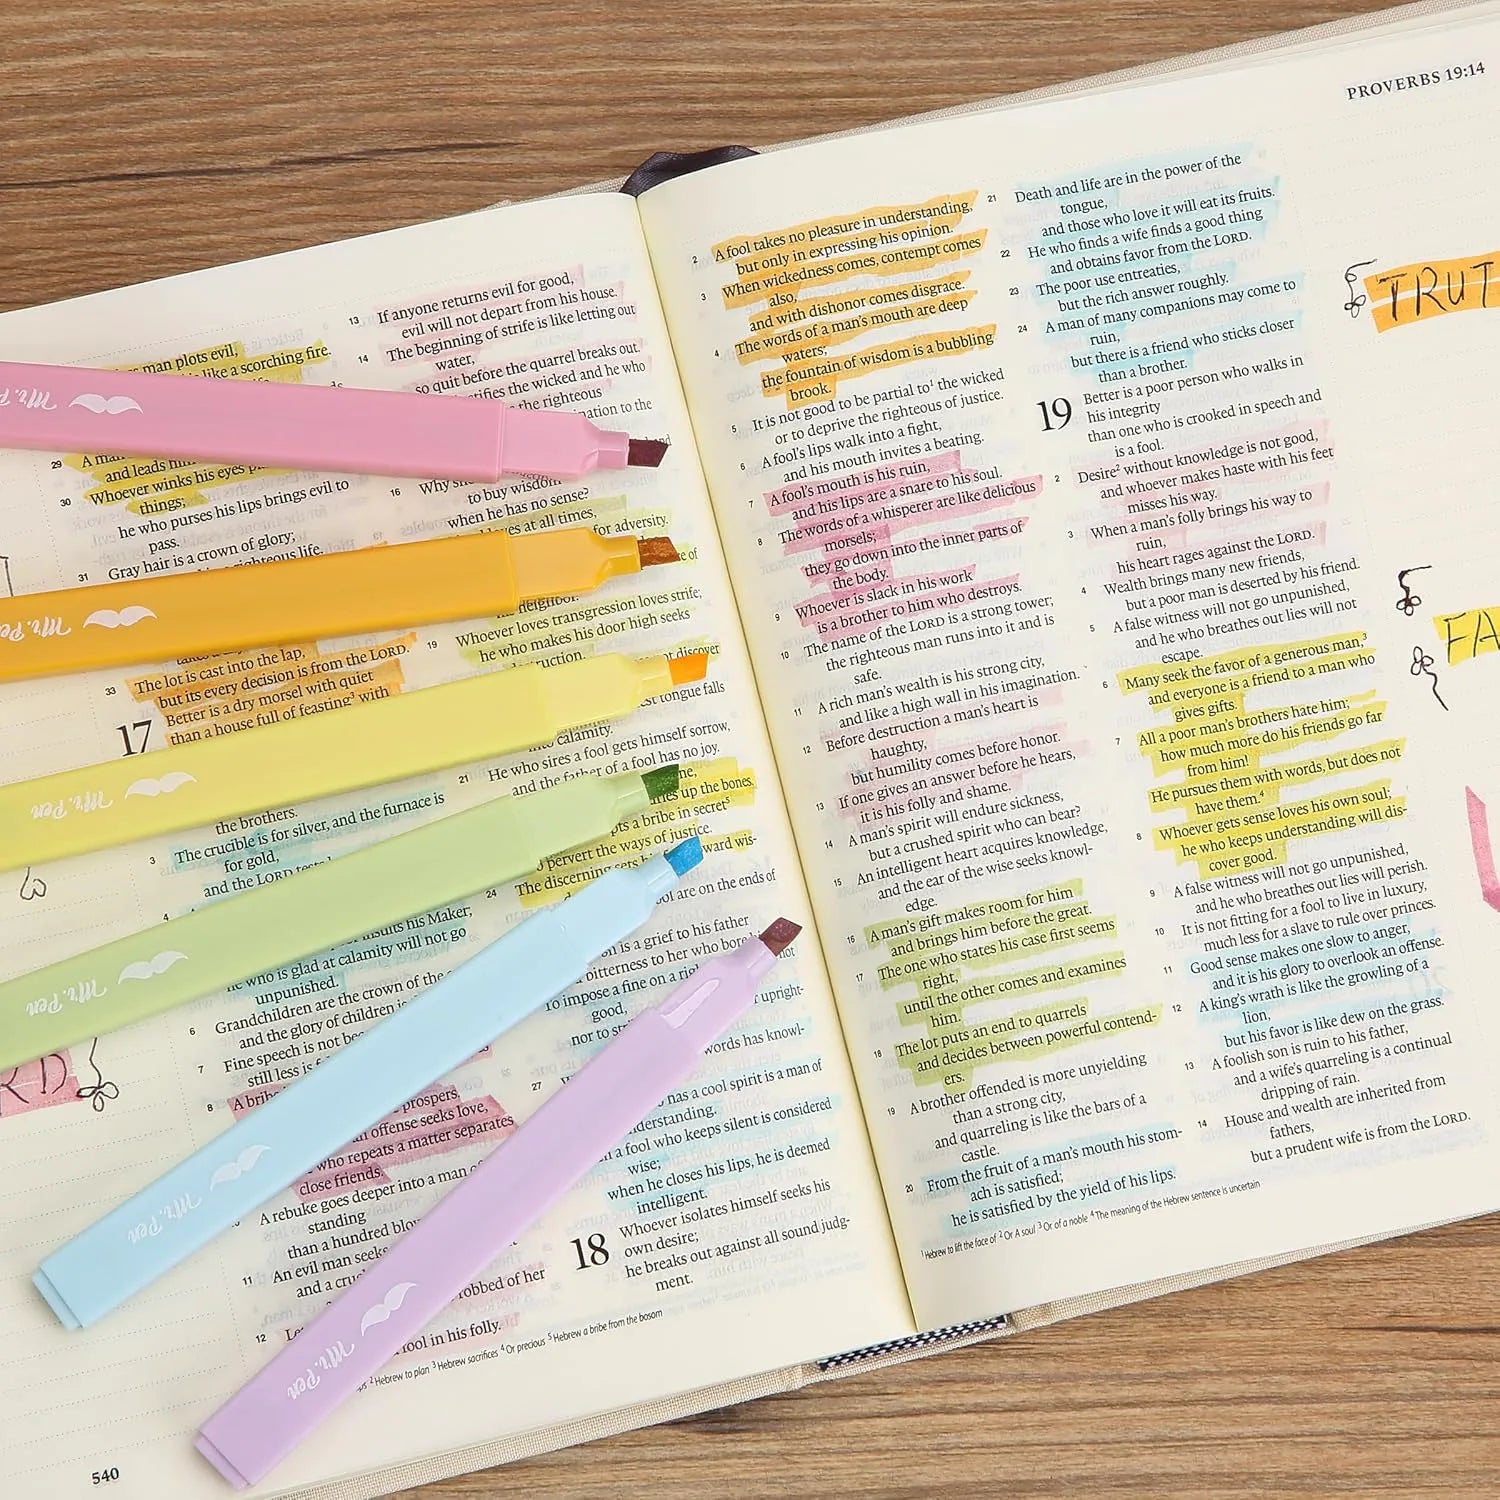 man plots evil,
like a scorching fire.
29 A man
and leads him
30 Whoever winks his eyes
things;
he who purses his lips brings evil to
pass.
31 Gray hair is a crown of glory;
righteous life.
33 The lot is cast into the lap,
but its every decision is from the LORD.
17 Better is a dry morsel with quiet
than a house full of feasting³ with
the brothers.
3 The crucible is for silver, and the furnace is
for gold,
and the LORD
4
insults his Maker;
he who is glad at calamity will not go
unpunished.
6 Grandchildren are the crown of the
and the glory of children
7 Fine speech is not
still less is
8 A bribe
prospers.
an offense seeks love,
who repeats a matter separates
close friends.
A rebuke goes deeper into a man of
standing
than a hundred
11 An evil man seeks
and a
robbed of her
12
fool in his folly.
13 If anyone returns evil for good,
evil will not depart from his house.
14 The beginning of strife is like letting out
water,
so quit before the quarrel breaks out.
the wicked and he who
the righteous
to the
16 Why
to buy wisdom
when he has no sense?
loves at all times,
for adversity.
of
neighbor.
19 Whoever loves transgression loves strife;
he who makes his door high seeks
discover
tongue falls
into calamity.
21 He who sires a fool gets himself sorrow,
and the father of a fool has no joy.
up the bones.
a bribe in secret⁵
pervert the ways of justice.
24 The discerning sets his
toward wis-
are on the ends of
is a grief to his father
bitterness to her who bore
To impose a fine on a
not
good,
nor to
upright-
words has knowl-
27
has a cool spirit is a man of
understanding.
a fool who keeps silent is considered
wise;
when he closes his lips, he is deemed
intelligent.
18 Whoever isolates himself seeks his
own desire;
he breaks out against all sound judg-
ment.
² Hebrew to plan ³ Hebrew sacrifices ⁴ Or precious ⁵ Hebrew a bribe from the bosom
540
PROVERBS 19:14
2 A fool takes no pleasure in understanding,
but only in expressing his opinion.
3 When wickedness comes, contempt comes
also,
and with dishonor comes disgrace.
4 The words of a man's mouth are deep
waters;
the fountain of wisdom is a bubbling
brook.
5 It is not good to be partial to¹ the wicked
or to deprive the righteous of justice.
6 A fool's lips walk into a fight,
and his mouth invites a beating.
7 A fool's mouth is his ruin,
and his lips are a snare to his soul.
8 The words of a whisperer are like delicious
morsels;
they go down into the inner parts of
the body.
9 Whoever is slack in his work
is a brother to him who destroys.
10 The name of the LORD is a strong tower;
the righteous man runs into it and is
safe.
11 A rich man's wealth is his strong city,
and like a high wall in his imagination.
12 Before destruction a man's heart is
haughty,
but humility comes before honor.
13 If one gives an answer before he hears,
it is his folly and shame.
14 A man's spirit will endure sickness,
but a crushed spirit who can bear?
15 An intelligent heart acquires knowledge,
and the ear of the wise seeks knowl-
edge.
16 A man's gift makes room for him
and brings him before the great.
17 The one who states his case first seems
right,
until the other comes and examines
him.
18 The lot puts an end to quarrels
and decides between powerful contend-
ers.
19 A brother offended is more unyielding
than a strong city,
and quarreling is like the bars of a
castle.
20 From the fruit of a man's mouth his stom-
ach is satisfied;
he is satisfied by the yield of his lips.
21 Death and life are in the power of the
tongue,
and those who love it will eat its fruits.
22 He who finds a wife finds a good thing
and obtains favor from the LORD.
23 The poor use entreaties,
but the rich answer roughly.
24 A man of many companions may come to
ruin,
but there is a friend who sticks closer
than a brother.
19 Better is a poor person who walks in
his integrity
than one who is crooked in speech and
is a fool.
2 Desire² without knowledge is not good,
and whoever makes haste with his feet
misses his way.
3 When a man's folly brings his way to
ruin,
his heart rages against the LORD.
4 Wealth brings many new friends,
but a poor man is deserted by his friend.
5 A false witness will not go unpunished,
and he who breathes out lies will not
escape.
6 Many seek the favor of a generous man,³
and everyone is a friend to a man who
gives gifts.
7 All a poor man's brothers hate him;
how much more do his friends go far
from him!
He pursues them with words, but does not
have them.⁴
8 Whoever gets sense loves his own soul;
he who keeps understanding will dis-
cover good.
9 A false witness will not go unpunished,
and he who breathes out lies will perish.
10 It is not fitting for a fool to live in luxury,
much less for a slave to rule over princes.
11 Good sense makes one slow to anger,
and it is his glory to overlook an offense.
12 A king's wrath is like the growling of a
lion,
but his favor is like dew on the grass.
13 A foolish son is ruin to his father,
and a wife's quarreling is a continual
dripping of rain.
14 House and wealth are inherited from
fathers,
but a prudent wife is from the LORD.
¹ Hebrew to lift the face of ² Or A soul ³ Or of a noble ⁴ The meaning of the Hebrew sentence is uncertain
TRUT
FA
RD
Mr. P
Mr. Pen
Mr. Pen
Mr. Pen
Mr. Pen
Mr. Pen